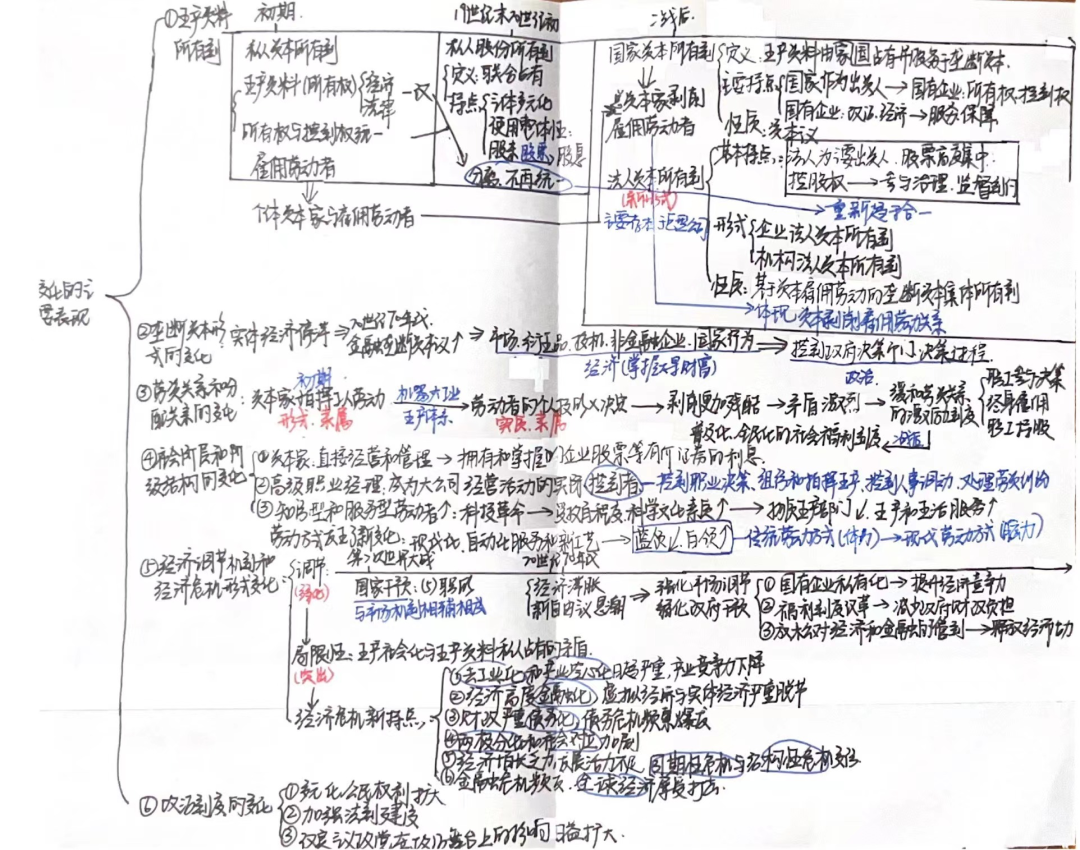 ①生产资料 初期. 19世纪末20世纪初 二战后
所有制
私人资本所有制
生产资料(所有权) 经济
法律
所有权与控制权统一
雇佣劳动者
个体资本家与雇佣劳动者
私人股份所有制
定义:联合占有
特点 主体多元化
使用整体性:
股东 股票,股息
分离.不再统一
国家资本所有制
定义:生产资料由国家占有并服务于垄断资本.
主要特点 国家作为出资人→国有企业:所有权.控制权
国有企业:政治.经济→服务.保障
性质:资本主义
资本家剥削
雇佣劳动者
法人资本所有制
(新形式)
基本特点:法人为主要出资人.股票高度集中.
控股权→参与治理.监督部门
重新趋于合一
形式 企业法人资本所有制
机构法人资本所有制
性质:基于资本雇佣劳动的垄断资本集体所有制
体现.资本剥削雇佣劳动关系
变化的主
要表现
②垄断资本形
式的变化 实体经济停滞→20世纪70年代.
金融垄断资本↑→市场.非金融企业.国家行为→控制政府决策部门决策进程.
经济(掌握大量财富) 政治.
③劳资关系和分
配关系的变化
初期
资本家指挥工人劳动 机器大工业
形式.隶属 生产体系
劳动者的个人
实质.隶属
→剥削更加残酷→矛盾激烈→缓和劳资关系
的激励制度
职工参与决策
终身雇佣
职工持股
普及化.全民化的社会福利制度
④社会阶层和阶
级结构的变化
①资本家.直接经营和管理→拥有和掌握的企业股票等有价证券的利息.
②高级职业经理:成为大公司经营活动的实际控制者—控制职业决策、组织和指挥生产、控制人事调动、处理劳资纠纷
③知识型和服务型劳动者↑:科技革命→受教育程度.科学文化素质↑→物质生产部门↓.生产和生活服务↑
劳动方式发生了新变化:现代化.自动化服务和新工艺.→蓝领↓.白领↑—传统劳动方式(体力)→现代劳动方式(脑力)
⑤经济调节机制和
经济危机形式变化
调节: 第二次世界大战
(强化)
国家干预:
与市场机制相辅相成
20世纪70年代
经济滞胀
新自由主义思潮
→强化市场调节
弱化政府干预
①国有企业私有化→提升经济竞争力
②福利制度改革→减少政府财政负担
③放松对经济和金融的管制→释放经济活力
局限性:生产社会化与生产资料私人占有的矛盾.
(突出)
经济危机新特点
①去工业化和产业空心化日趋严重,产业竞争力下降
②经济高度金融化.虚拟经济与实体经济严重脱节
③财政严重债务化.债务危机频繁爆发
④两极分化和社会对立加剧
⑤经济增长乏力.发展活力不足.周期性危机与结构性危机交织
⑥金融危机频发.全球经济屡受打击.
⑥政治制度的变化
①多元化公民权利扩大
②加强法制建设
③改良主义政党在政治舞台上的影响日益扩大.